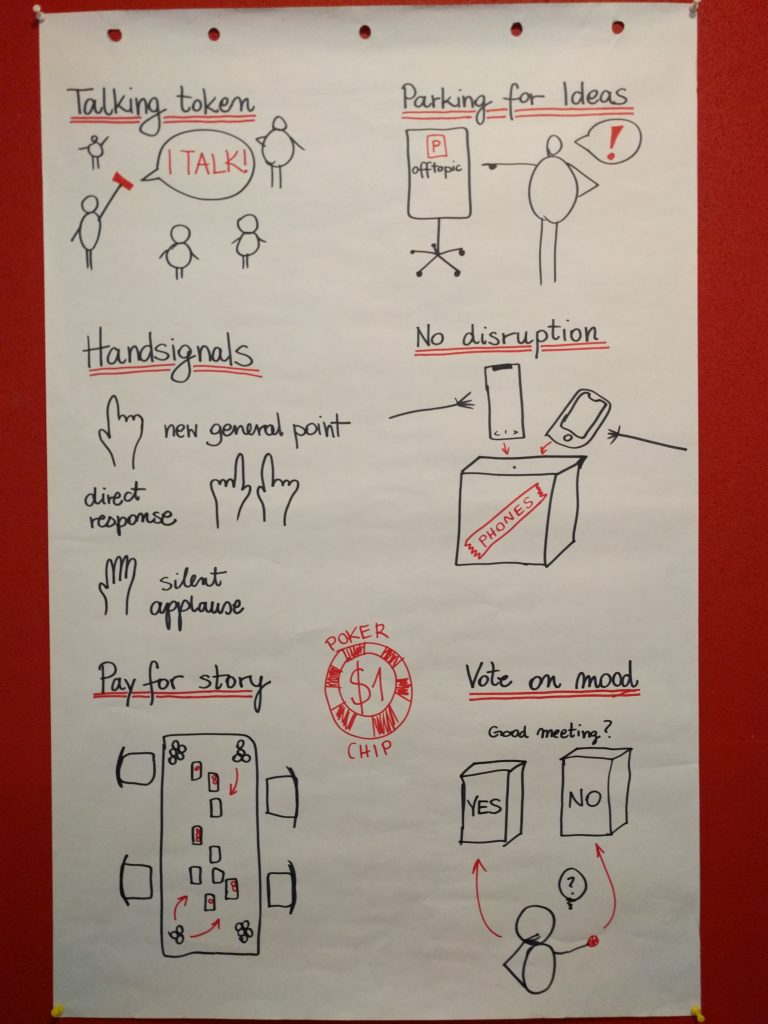 Talking token
I TALK!
Parking for Ideas
P
offtopic
!
Handsignals
new general point
direct
response
silent
applause
No disruption
PHONES
Pay for story
POKER
$1
CHIP
Vote on mood
Good meeting?
YES
NO
?